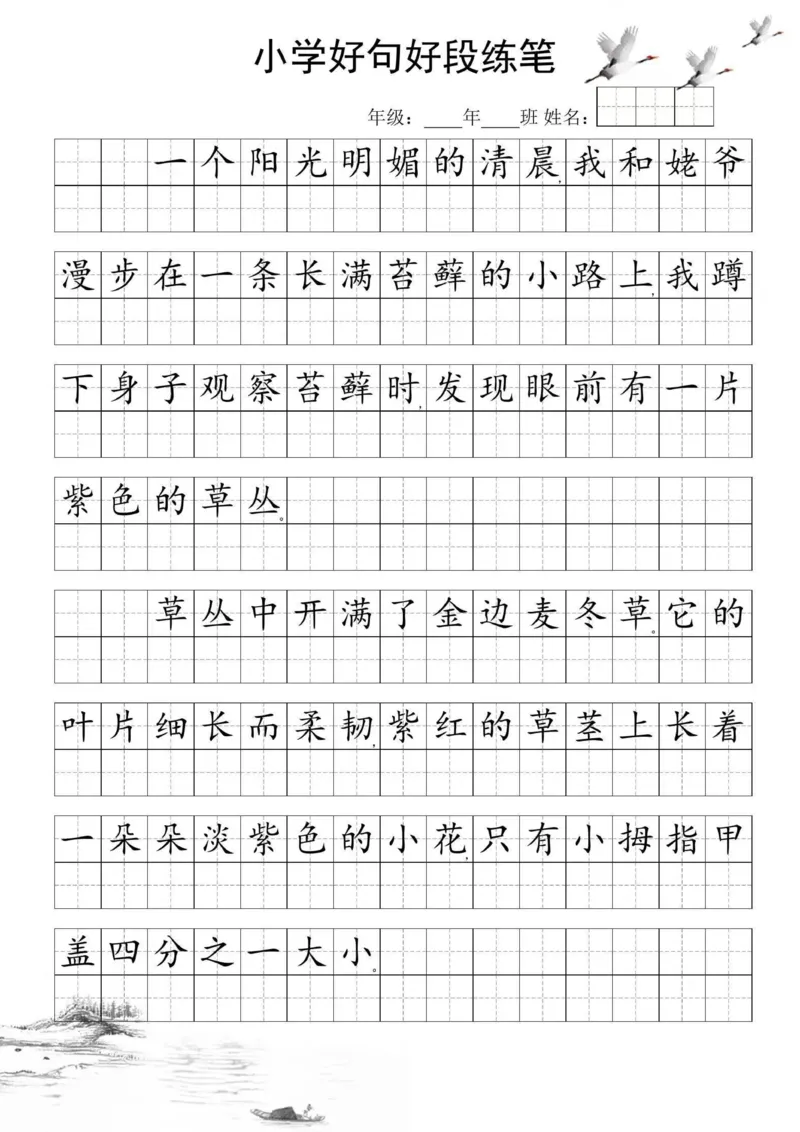 小学好句好段练笔
年级：____年____班 姓名：
一个阳光明媚的清晨,我和姥爷
漫步在一条长满苔藓的小路上,我蹲
下身子观察苔藓时,发现眼前有一片
紫色的草丛。
草丛中开满了金边麦冬草。它的
叶片细长而柔韧,紫红的草茎上长着
一朵朵淡紫色的小花,只有小拇指甲
盖四分之一大小。